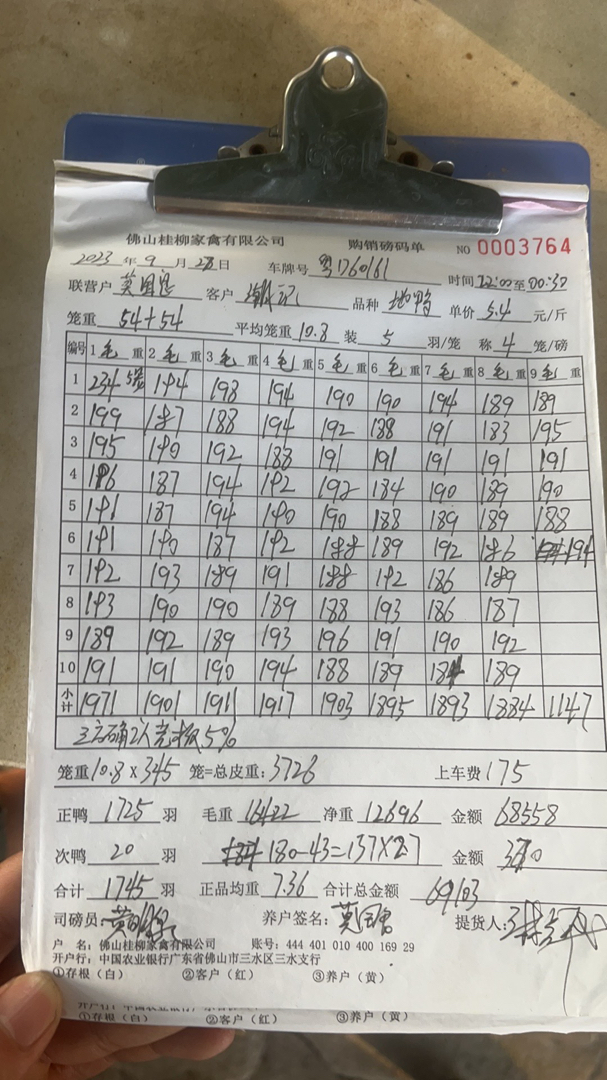 佛山桂柳家禽有限公司 购销磅码单 NO 0003764
2023年9月28日 车牌号 粤J76016J 时间22:00至00:30
联营户 客户 潮记 品种 地鸭 单价 5.4 元/斤
笼重 54+54 平均笼重10.8 装 5 羽/笼 称 4 笼/磅
编号 1毛重 2毛重 3毛重 4毛重 5毛重 6毛重 7毛重 8毛重 9毛重
1 234 5笼 194 198 194 190 190 194 189 189
2 199 187 188 194 192 188 191 183 195
3 195 190 192 188 191 191 191 191 191
4 196 187 194 192 192 184 190 189 190
5 191 187 194 190 190 188 189 189 188
6 191 190 187 192 188 189 192 186 194
7 192 193 189 191 188 192 186 189
8 193 190 190 189 188 193 186 187
9 189 192 189 193 196 191 190 192
10 191 191 190 194 188 189 184 189
小计 1971 1901 1911 1917 1903 1895 1893 1884 1147
5%
笼重10.8 X 345 笼=总皮重:3726 上车费175
正鸭 1725 羽 毛重 16422 净重 12696 金额 68558
次鸭 20 羽 180-43=137X2.7 金额 370
合计 1745 羽 正品均重 7.36 合计总金额 69103
司磅员: 养户签名: 提货人:
户 名: 佛山桂柳家禽有限公司 账号: 444 401 010 400 169 29
开户行: 中国农业银行广东省佛山市三水区三水支行
①存根(白) ②客户(红) ③养户(黄)
①存根(白) ②客户(红) ③养户(黄)